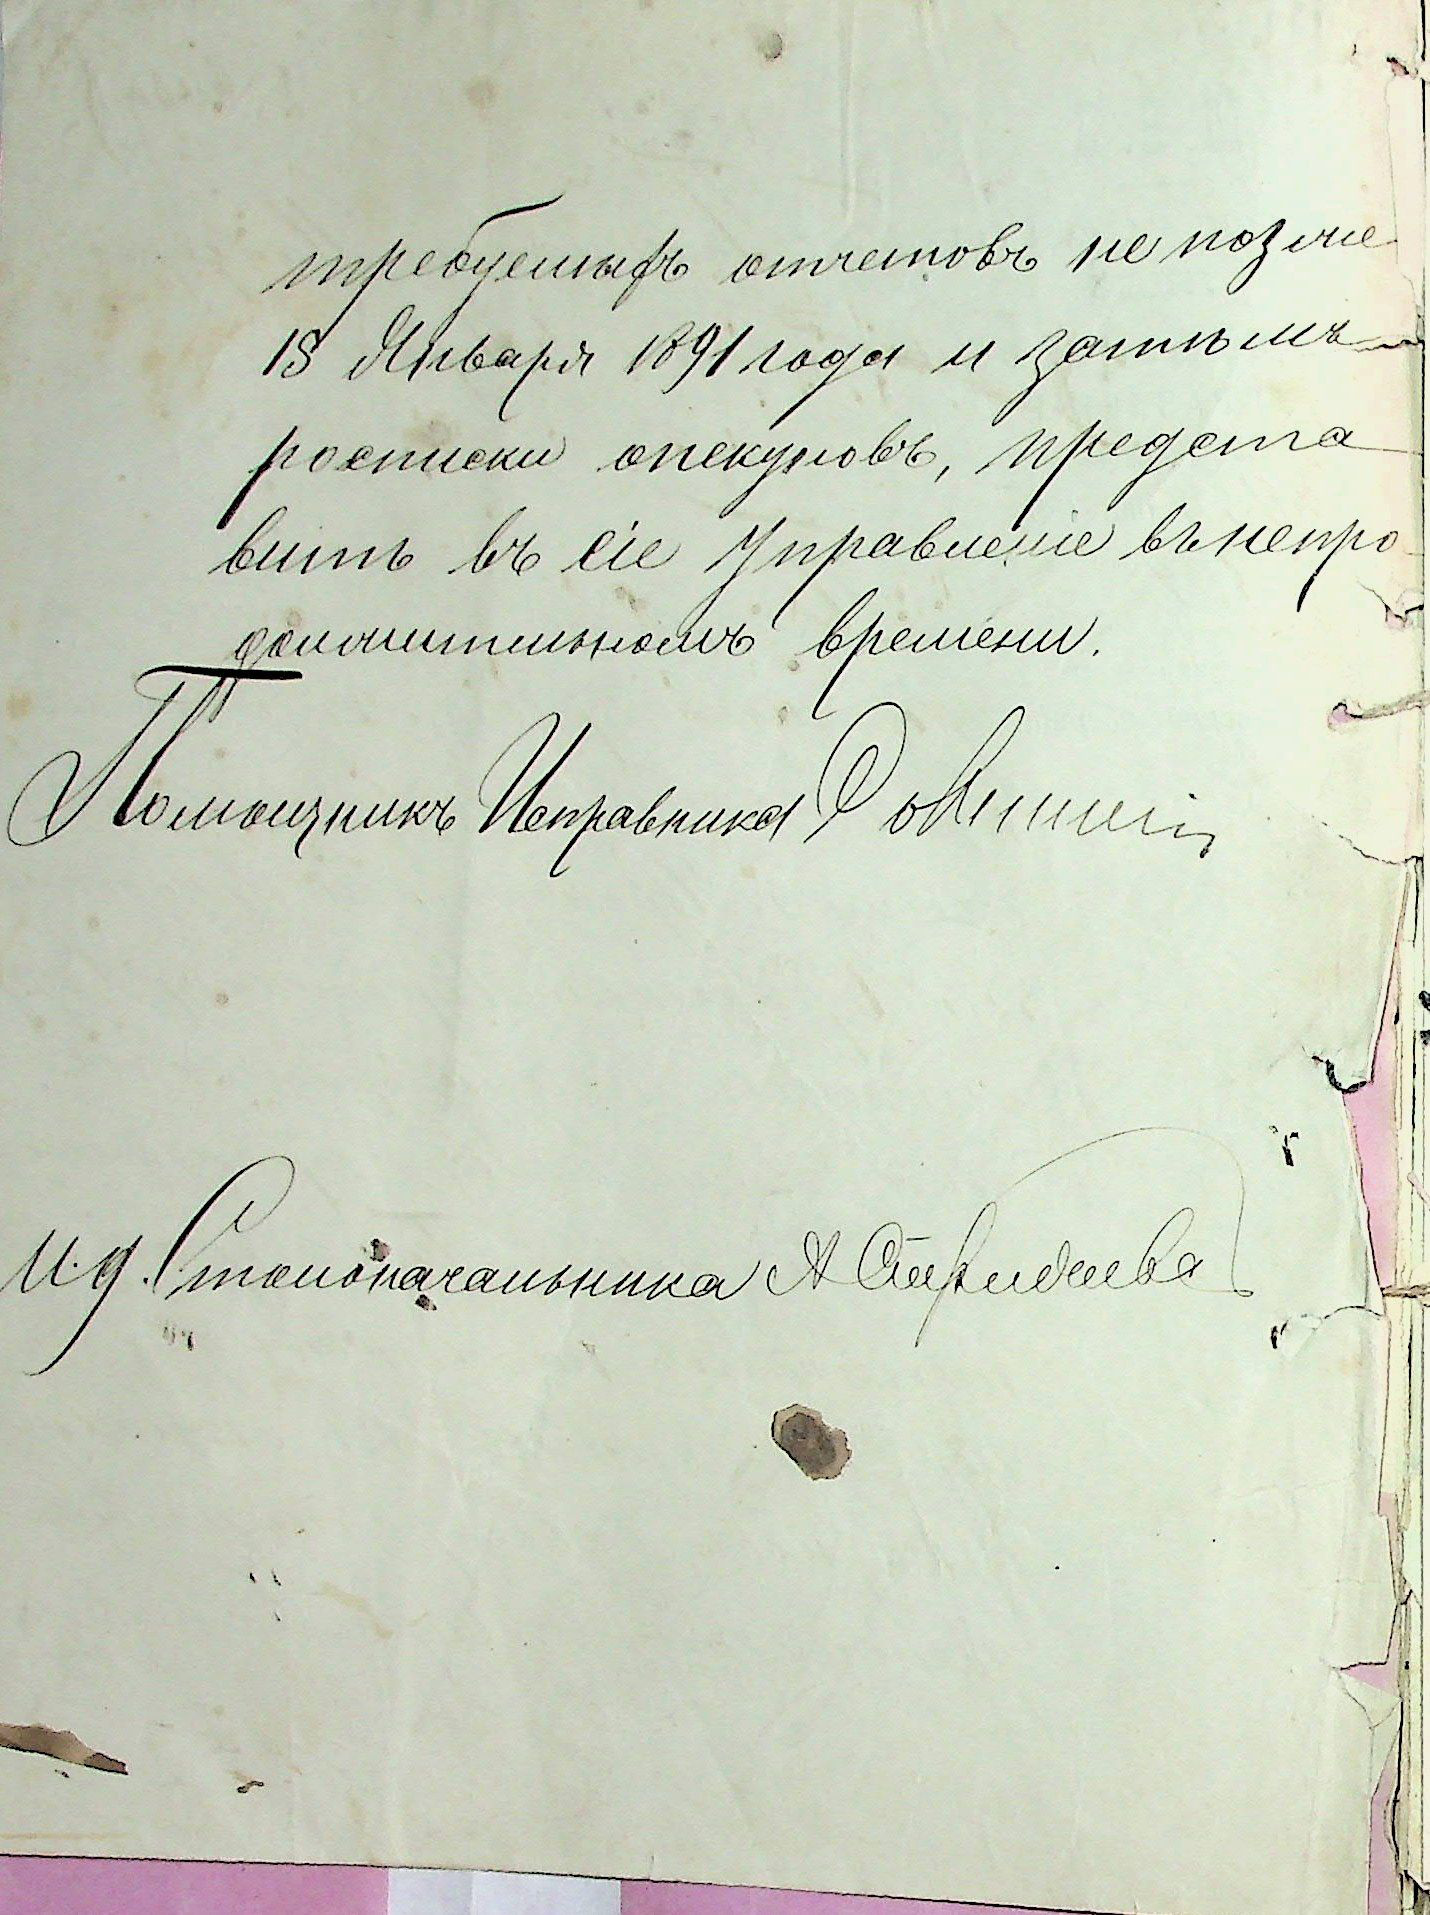 требуемыхъ отчетовъ не позже
15 Января 1891 года и затѣмъ
росписки опекуновъ, предста
вить въ сіе Управленіе въ непро
должительномъ времени.
Помощникъ Исправника
И. д. Столоначальника А